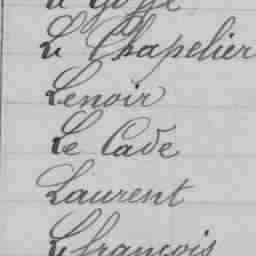 Le Chapelier
Lenoir
Le Cade
Laurent
Lefrançois